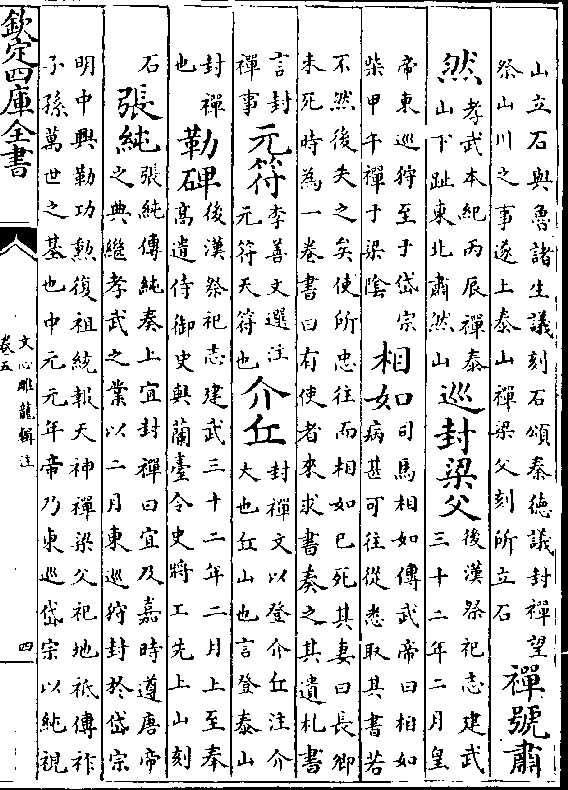 山立石與魯諸生議刻石頌秦德議封禪望
祭山川之事遂上泰山禪梁父刻所立石
禪號肅
然
孝武本紀丙辰禪泰
山下趾東北肅然山
巡封梁父
後漢祭祀志建武
三十二年二月皇
帝東巡狩至于岱宗
柴甲午禪于梁陰
相如
司馬相如傳武帝曰相如
病甚可往從悉取其書若
不然後失之矣使所忠往而相如已死其妻曰長卿
未死時為一卷書曰有使者來求書奏之其遺札書
言封
禪事
元符
李善文選注
元符天符也
介丘
封禪文以登介丘注介
大也丘山也言登泰山
封禪
也
勒碑
後漢祭祀志建武三十二年二月上至奉
高遣侍御史與蘭臺令史將工先上山刻
石
張純
張純傳純奏上宜封禪曰宜及嘉時遵唐帝
之典繼孝武之業以二月東巡狩封於岱宗
明中興勒功勲復祖統報天神禪梁父祀地祗傳祚
子孫萬世之基也中元元年帝乃東巡岱宗以純視
欽定四庫全書
文心雕龍輯注
卷五
四